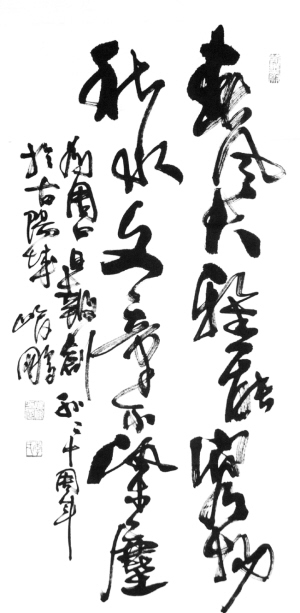 春風大雅能容物
秋水文章不染塵
周口日報創刊二十周年
於古